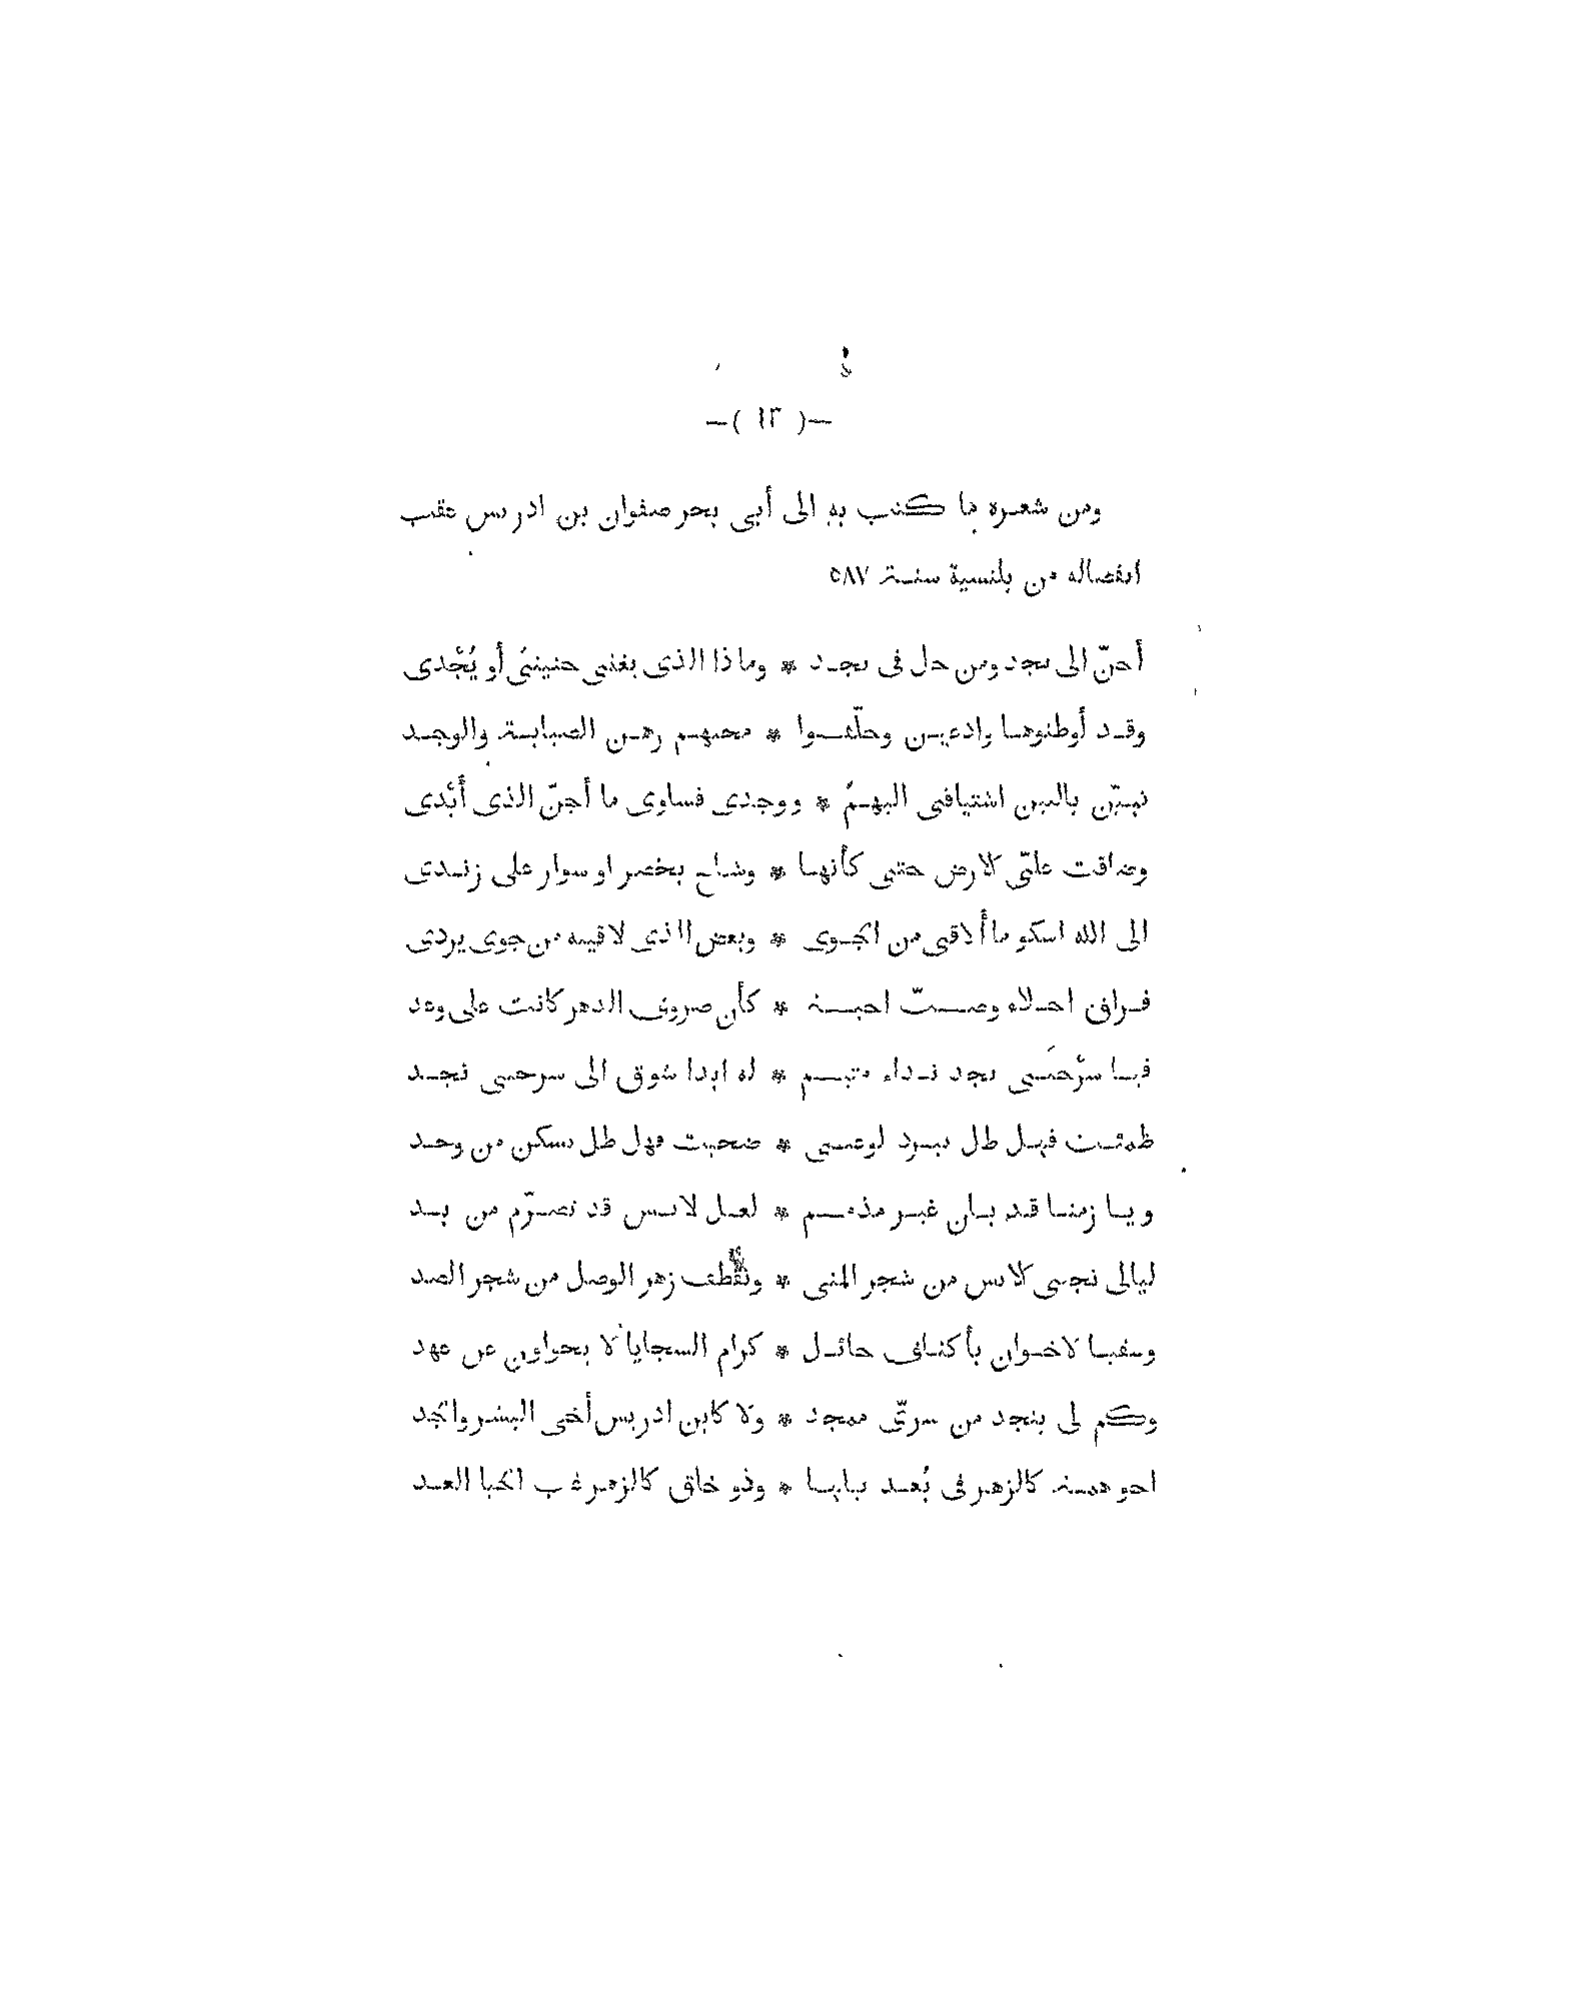 —( ١٣ )—
ومن شعره ما كتب به الى أبى بحر صفوان بن ادريس عقب
انفصاله من بلنسية سنة ٥٨٧
أحنّ الى نجد ومن حل فى نجد * وماذا الذى يغنى حنينى أو يُجْدى
وقد أوطنوها وادعين وخلّفوا * محبهم رهن الصبابة والوجد
تبيّن بالبين اشتياقى اليهمُ * ووجدى فساوى ما أجنّ الذى أبْدى
وضاقت علىّ الارض حتى كأنها * وشاح بخصر او سوار على زندى
الى الله اشكو ما ألاقى من الجوى * وبعض الذى لاقيته من جوى يردى
فراق اخلاء وصدّ احبة * كأن صروف الدهر كانت على وعد
فيا سرْحَتى نجد نداء متيم * له ابدا شوق الى سرحتى نجد
ظمئت فهل طل يبرد لوعتى * ضحيت فهل ظل يسكن من وجد
ويا زمنا قد بان غير مذمم * لعل لانس قد تصرّم من بد
ليالى نجنى الانس من شجر المنى * ونقطف زهر الوصل من شجر الصد
وسقيا لاخوان بأكناف حائل * كرام السجايا لا يحولون عن عهد
وكم لى بنجد من سرىّ ممجد * ولا كابن ادريس أخى البشر والجد
اخو همة كالزهر فى بُعد نيلها * وذو خلق كالزهر غب الحيا العد